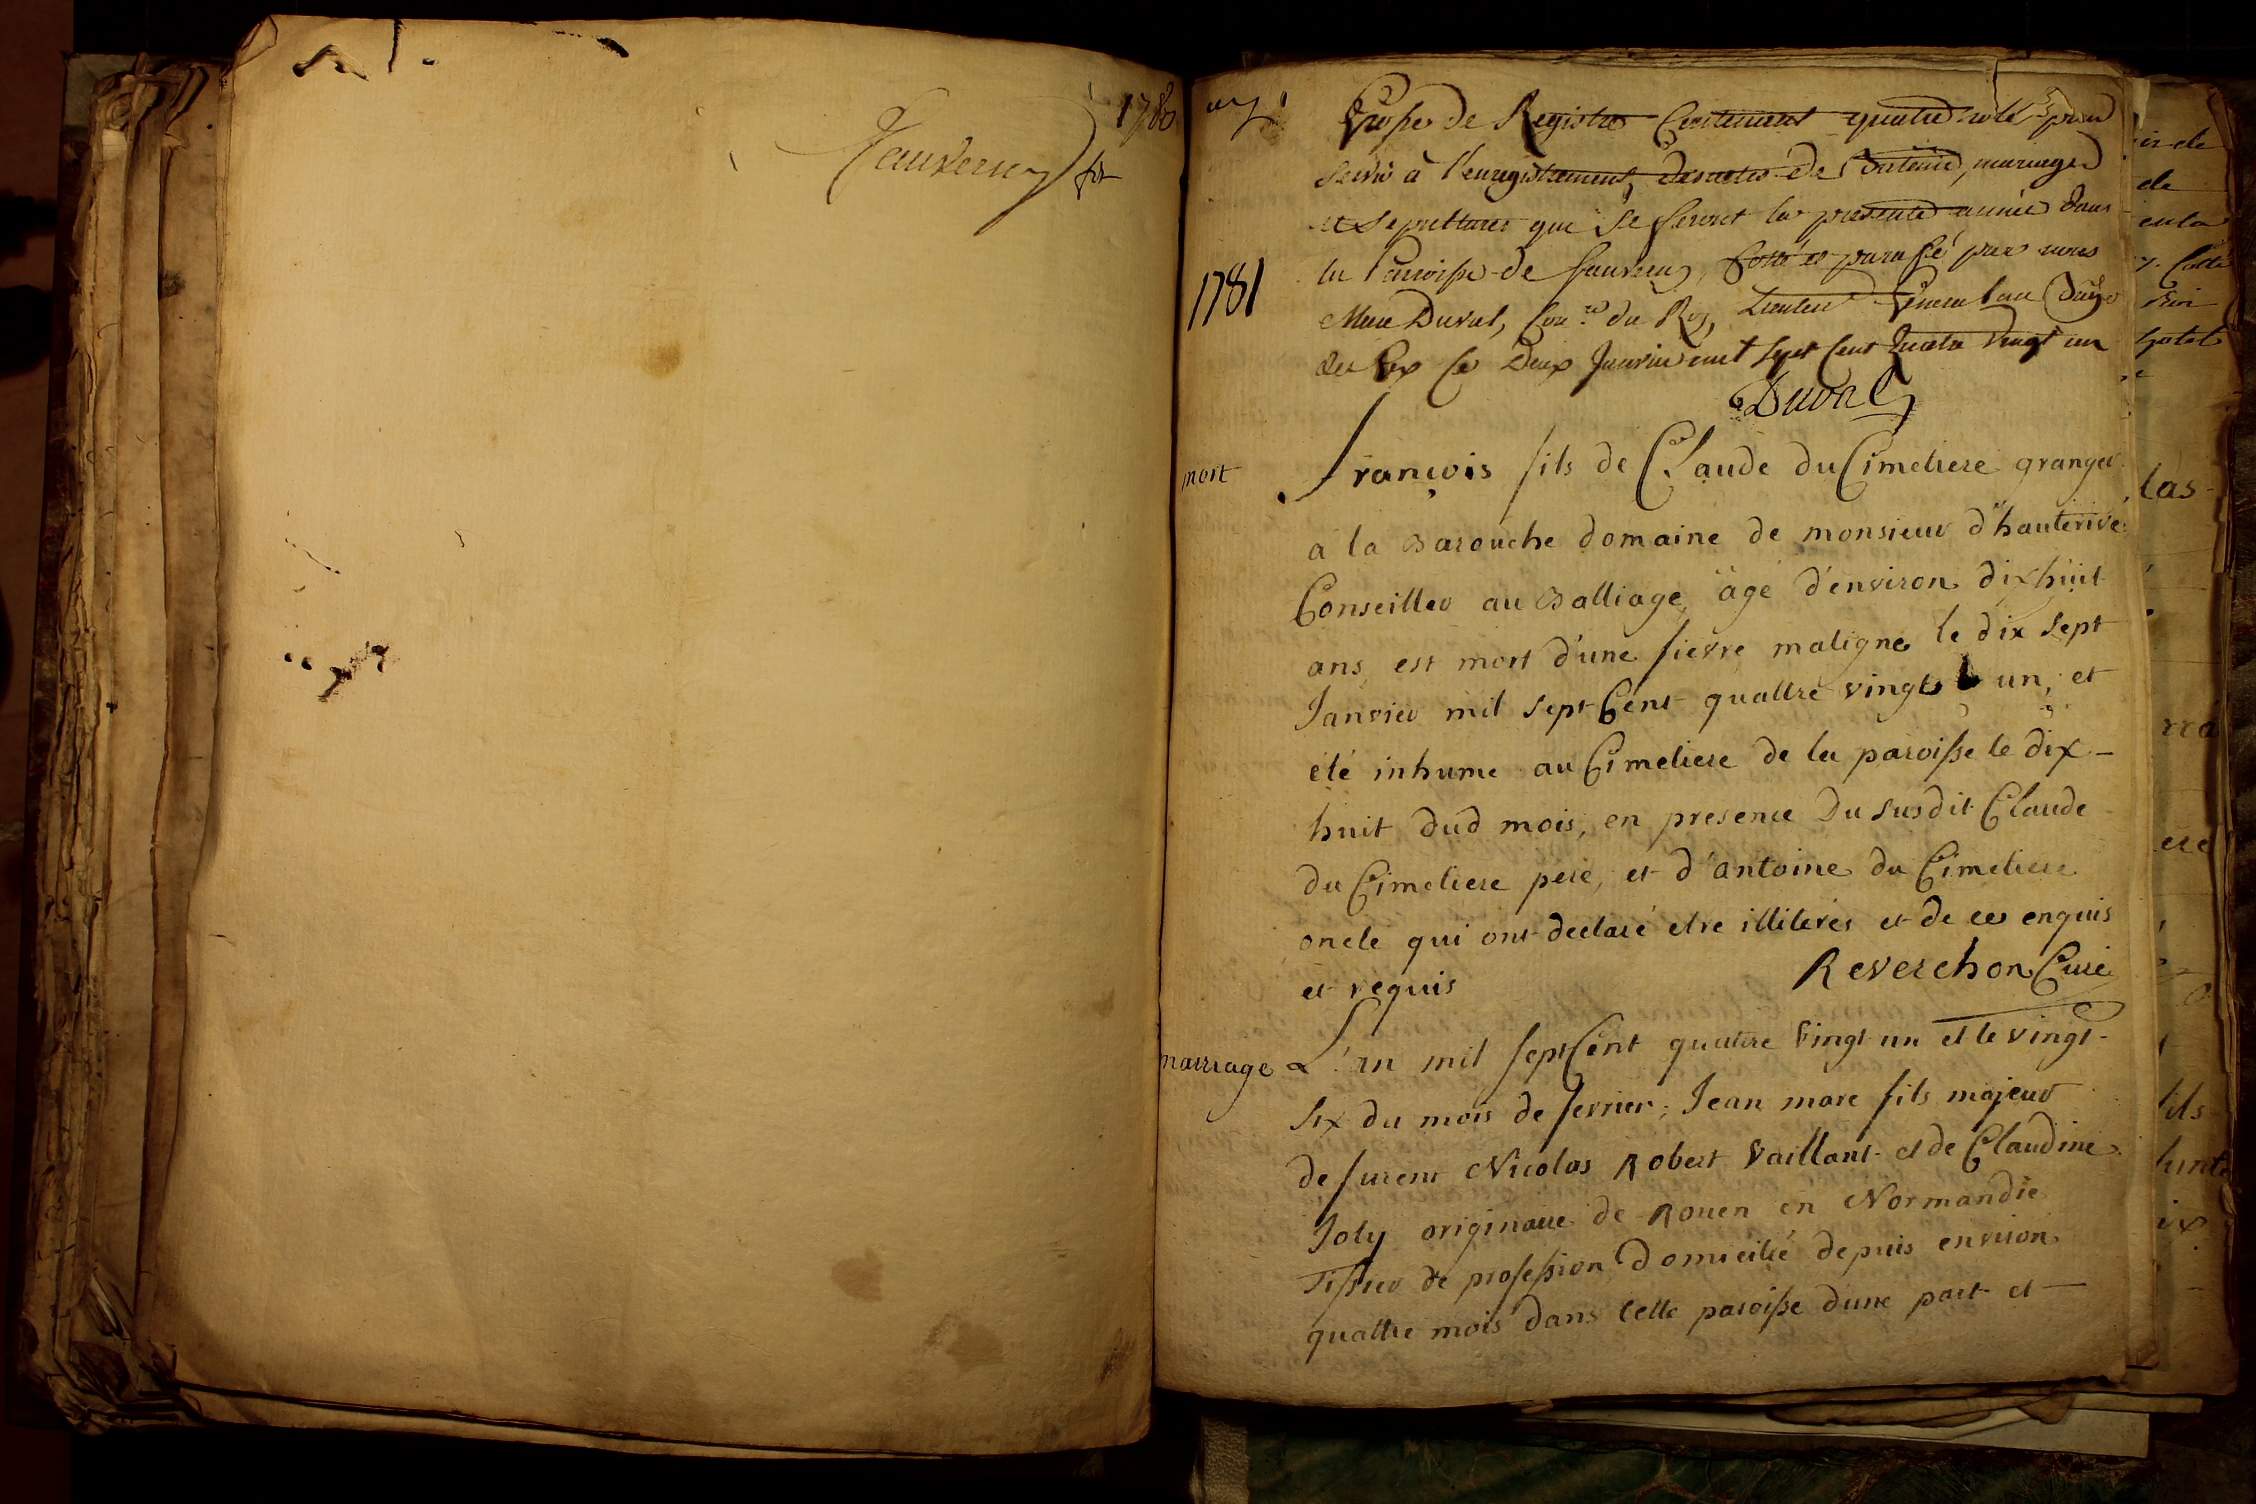 1780
Sauverny
Grosse de Registre Contenant quatre rolles pour
servir à l'enregistrement, des actes de Batême, mariages
et sepultures que se feront la presente année dans
la Paroisse de Sauverny, Cotté et paraffé par nous
1781
Duval, Con.er du Roy, Lieuten Général au Baïge
de Gex Ce Deux Janvier mil sept Cent Quatre Vingt un
Duval
mort
François fils de Claude du Cimetiere granger
a la Barouche domaine de monsieur d'hauterive
Conseiller au Balliage, âgé d'environ dixhuit
ans, est mort d'une fievre maligne le dix sept
Janvier mil sept Cent quattre vingt un, et
été inhume au Cimetiere de la paroisse le dix-
huit dud mois, en presence Du susdit Claude
du Cimetiere pere, et d'antoine du Cimetiere
oncle qui ont declaré etre illiterés et de ce enquis
et requis
Reverchon Curé
marriage
L'an mil sept Cent quatre vingt un et le vingt-
six du mois de fevrier; Jean marc fils majeur
de furent Nicolas Robert Vaillant et de Claudine
Joly originaire de Rouen en Normandie
Tissier de profession domicilié depuis environ
quattre mois dans Cette paroisse dune part et